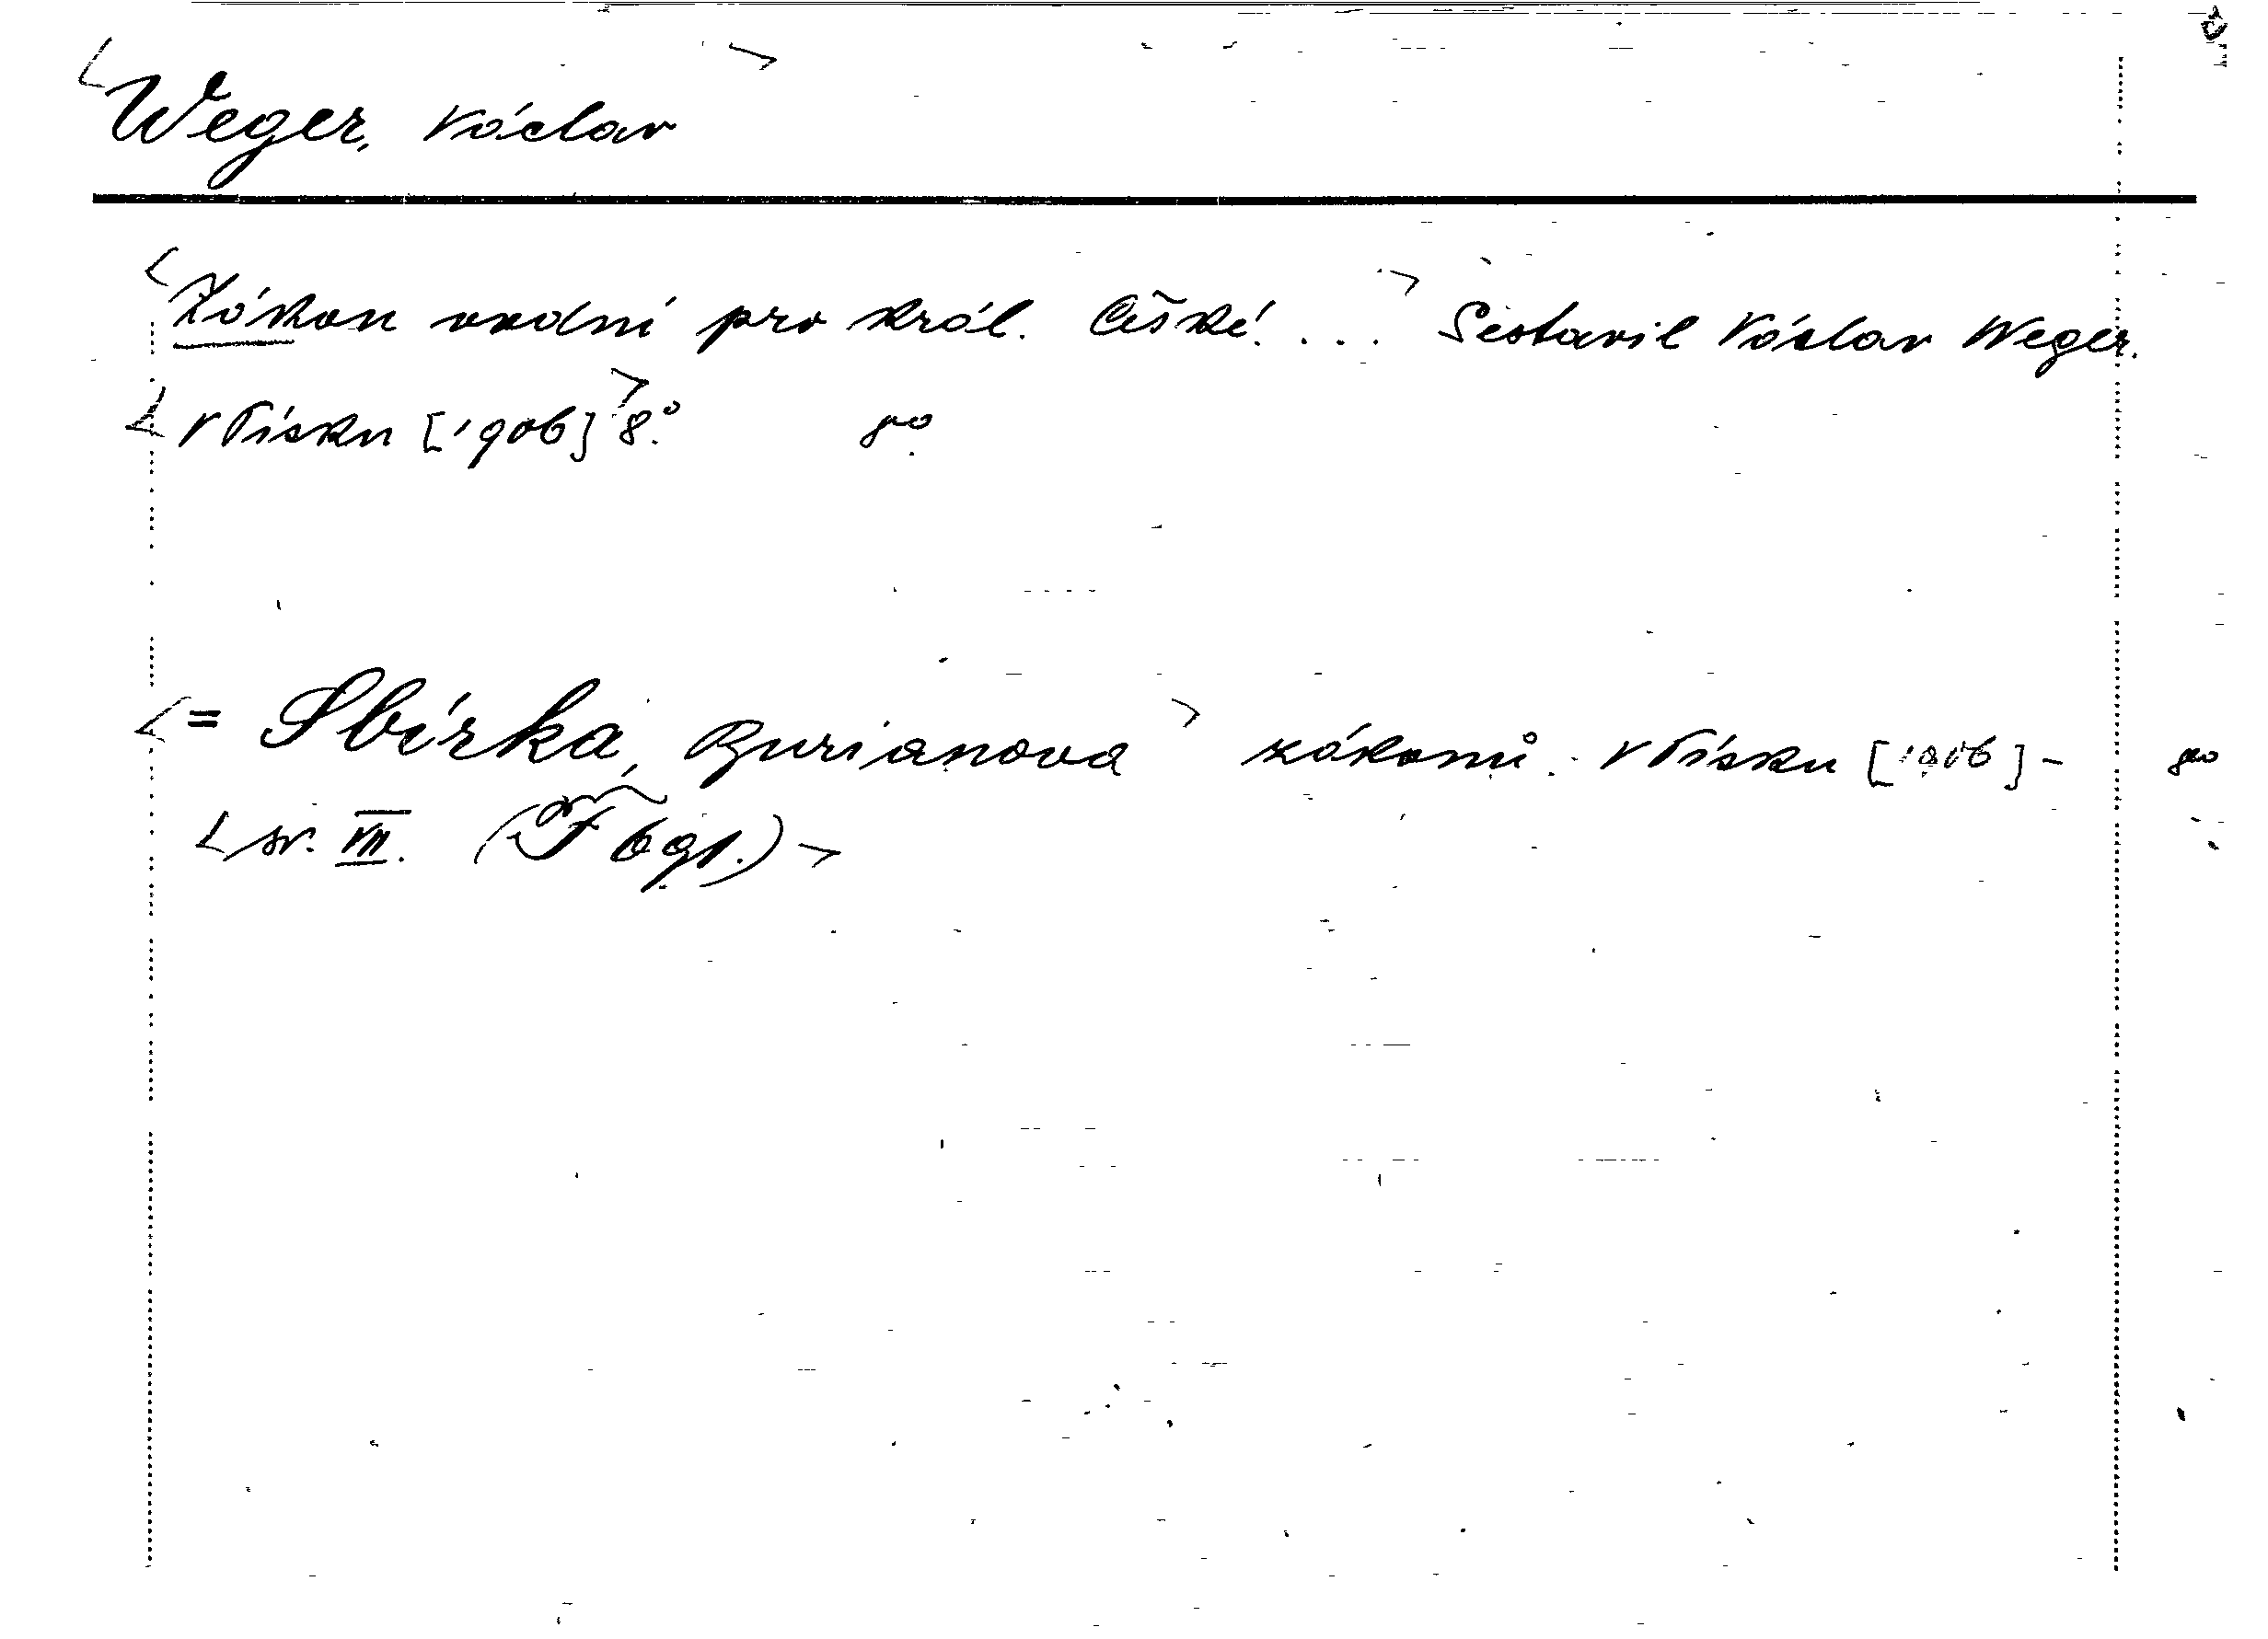 Weger, Václav
Zákon vodní pro král. České.... Sestavil Václav Weger.
V Písku [1906] 8°.
= Sbírka, Burianova zákonů. V Písku [1906] -
sv. VII. (F 691.)